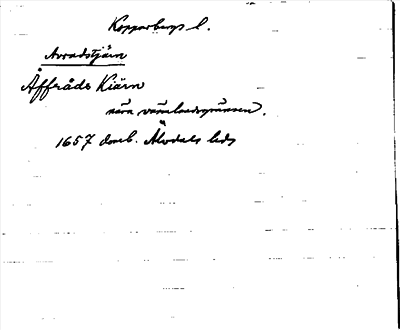 Kopparbergs l.
Avradstjärn
Åffråds Kiärn
nära värmlandsgränsen.
1657 domb. Älvdals hds